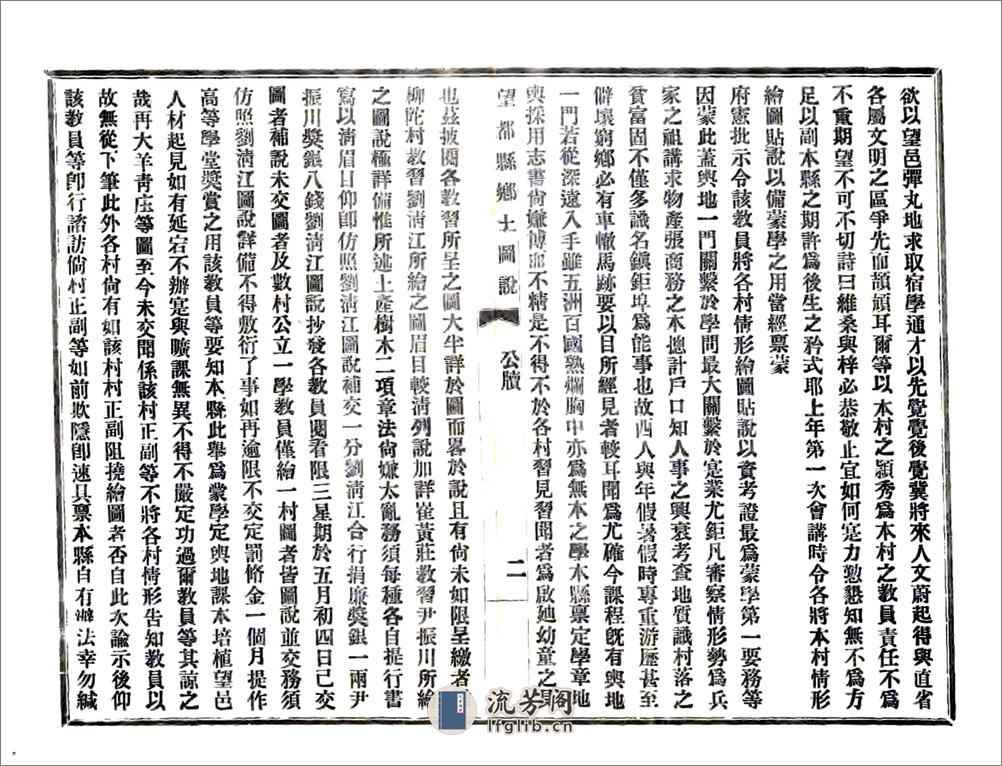 欲以望邑彈丸地求取宿學通才以先覺覺後覺冀將來人文蔚起得與直省
各屬文明之區爭先而頡頏耳爾等以本村之穎秀爲本村之教員責任不爲
不重期望不可不切詩曰維桑與梓必恭敬止宜如何寔力懃懇知無不爲方
足以副本縣之期許爲後生之矜式耶上年第一次會講時令各將本村情形
繪圖貼說以備蒙學之用當經禀蒙
府憲批示令該教員將各村情形繪圖貼說以資考證最爲蒙學第一要務等
因蒙此蓋輿地一門關繫於學問最大關繫於寔業尤鉅凡審察情形勢爲兵
家之祖講求物產張商務之本揔計戶口知人事之興衰考查地質識村落之
貧富固不僅多識名鎮鉅埠爲能事也故西人與年假暑假時專重游歷甚至
僻壤窮鄉必有車轍馬跡要以目所經見者較耳聞爲尤確今課程旣有輿地
一門若從深遠入手雖五洲百國熟爛胸中亦爲無本之學本縣禀定學章地
輿採用志書尙嫌博而不精是不得不於各村習見習聞者爲啟廸幼童之具
望都縣鄉土圖說 公牘 二
也茲披閱各教習所呈之圖大半詳於圖而畧於說且有尙未如限呈繳者
柳陀村教習劉淸江所繪之圖眉目較淸列說加詳崔黃莊教習尹振川所繪
之圖說極詳備惟所述土產樹木二項章法尙嫌太亂務須每種各自提行書
寫以淸眉目仰卽仿照劉淸江圖說補交一分劉淸江合行捐廉獎銀一兩尹
振川獎銀八錢劉淸江圖說抄發各教員閱看限三星期於五月初四日已交
圖者補說未交圖者及數村公立一學教員僅繪一村圖者皆圖說並交務須
仿照劉淸江圖說詳備不得敷衍了事如再逾限不交定罰脩金一個月提作
高等學堂獎賞之用該教員等要知本縣此舉爲蒙學定輿地課本培植望邑
人材起見如有延宕不辦寔與曠課無異不得不嚴定功過爾教員等其諒之
哉再大羊青庄等圖至今未交聞係該村正副等不將各村情形告知教員以
故無從下筆此外各村尙有如該村村正副阻撓繪圖者否自此次諭示後仰
該教員等卽行諮訪倘村正副等如前欺隱卽速具禀本縣自有辦法幸勿緘
流芳閣
lfglib.cn